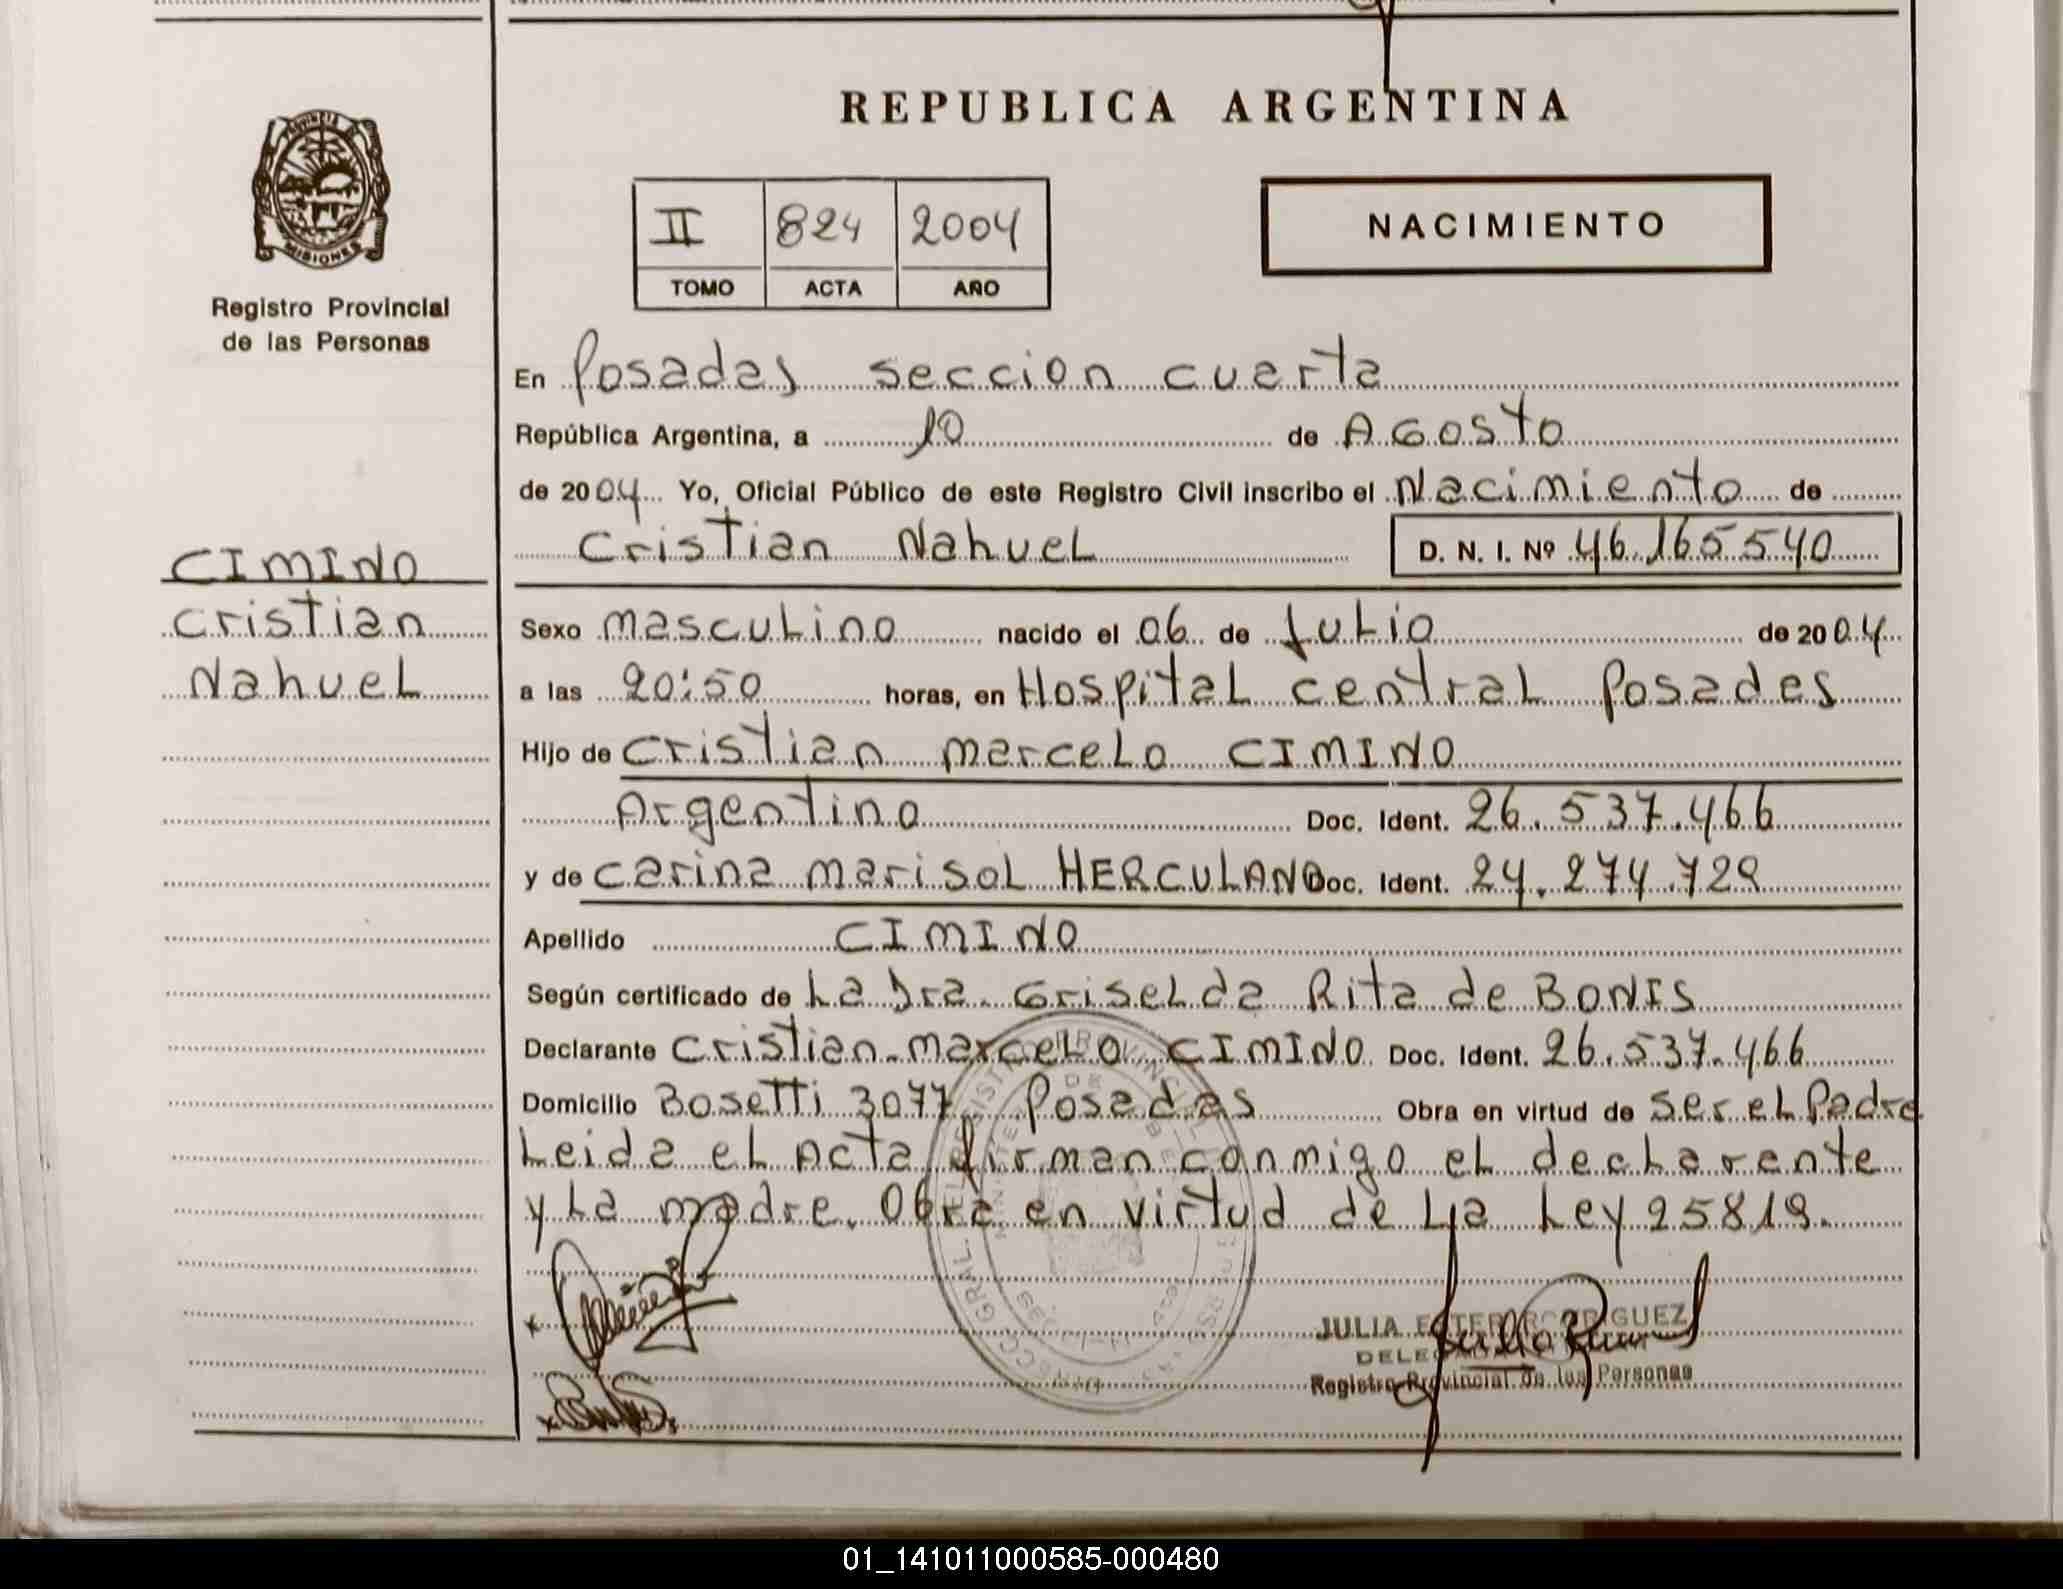 REPUBLICA ARGENTINA
PROVINCIA DE
MISIONES
Registro Provincial
de las Personas
NACIMIENTO
II 824 2004
TOMO ACTA AÑO
En Posadas seccion cuarta
República Argentina, a 10 de Agosto
de 2004 Yo, Oficial Público de este Registro Civil inscribo el Nacimiento de
Cristian Nahuel D. N. I. Nº 46.165540
CIMINO
Cristian
Nahuel
Sexo masculino nacido el 06 de Julio de 2004
a las 20:50 horas, en Hospital central Posadas
Hijo de Cristian marcelo CIMINO
Argentino Doc. Ident. 26.537.466
y de Carina marisol HERCULANO Doc. Ident. 24.274.729
Apellido CIMINO
Según certificado de La Dra. Griselda Rita de BONIS
Declarante Cristian marcelo CIMINO Doc. Ident. 26.537.466
Domicilio Bosetti 3077 Posadas Obra en virtud de ser el Padre
Leida el Acta firman conmigo el declarante
y La madre. Obra en virtud de La Ley 25819.
JULIA ESTER RODRIGUEZ
DELEGADA
Registro Provincial de las Personas
01_141011000585-000480